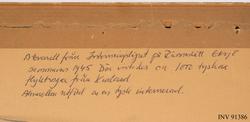 Akvarell från Interneringslägret på Rinmalätt Eksjö
sommaren 1945 Där vistades ca 1000 tyska
flyktingar från Kurland.
Akvarellen utförd av en tysk internerad.
INV 91386